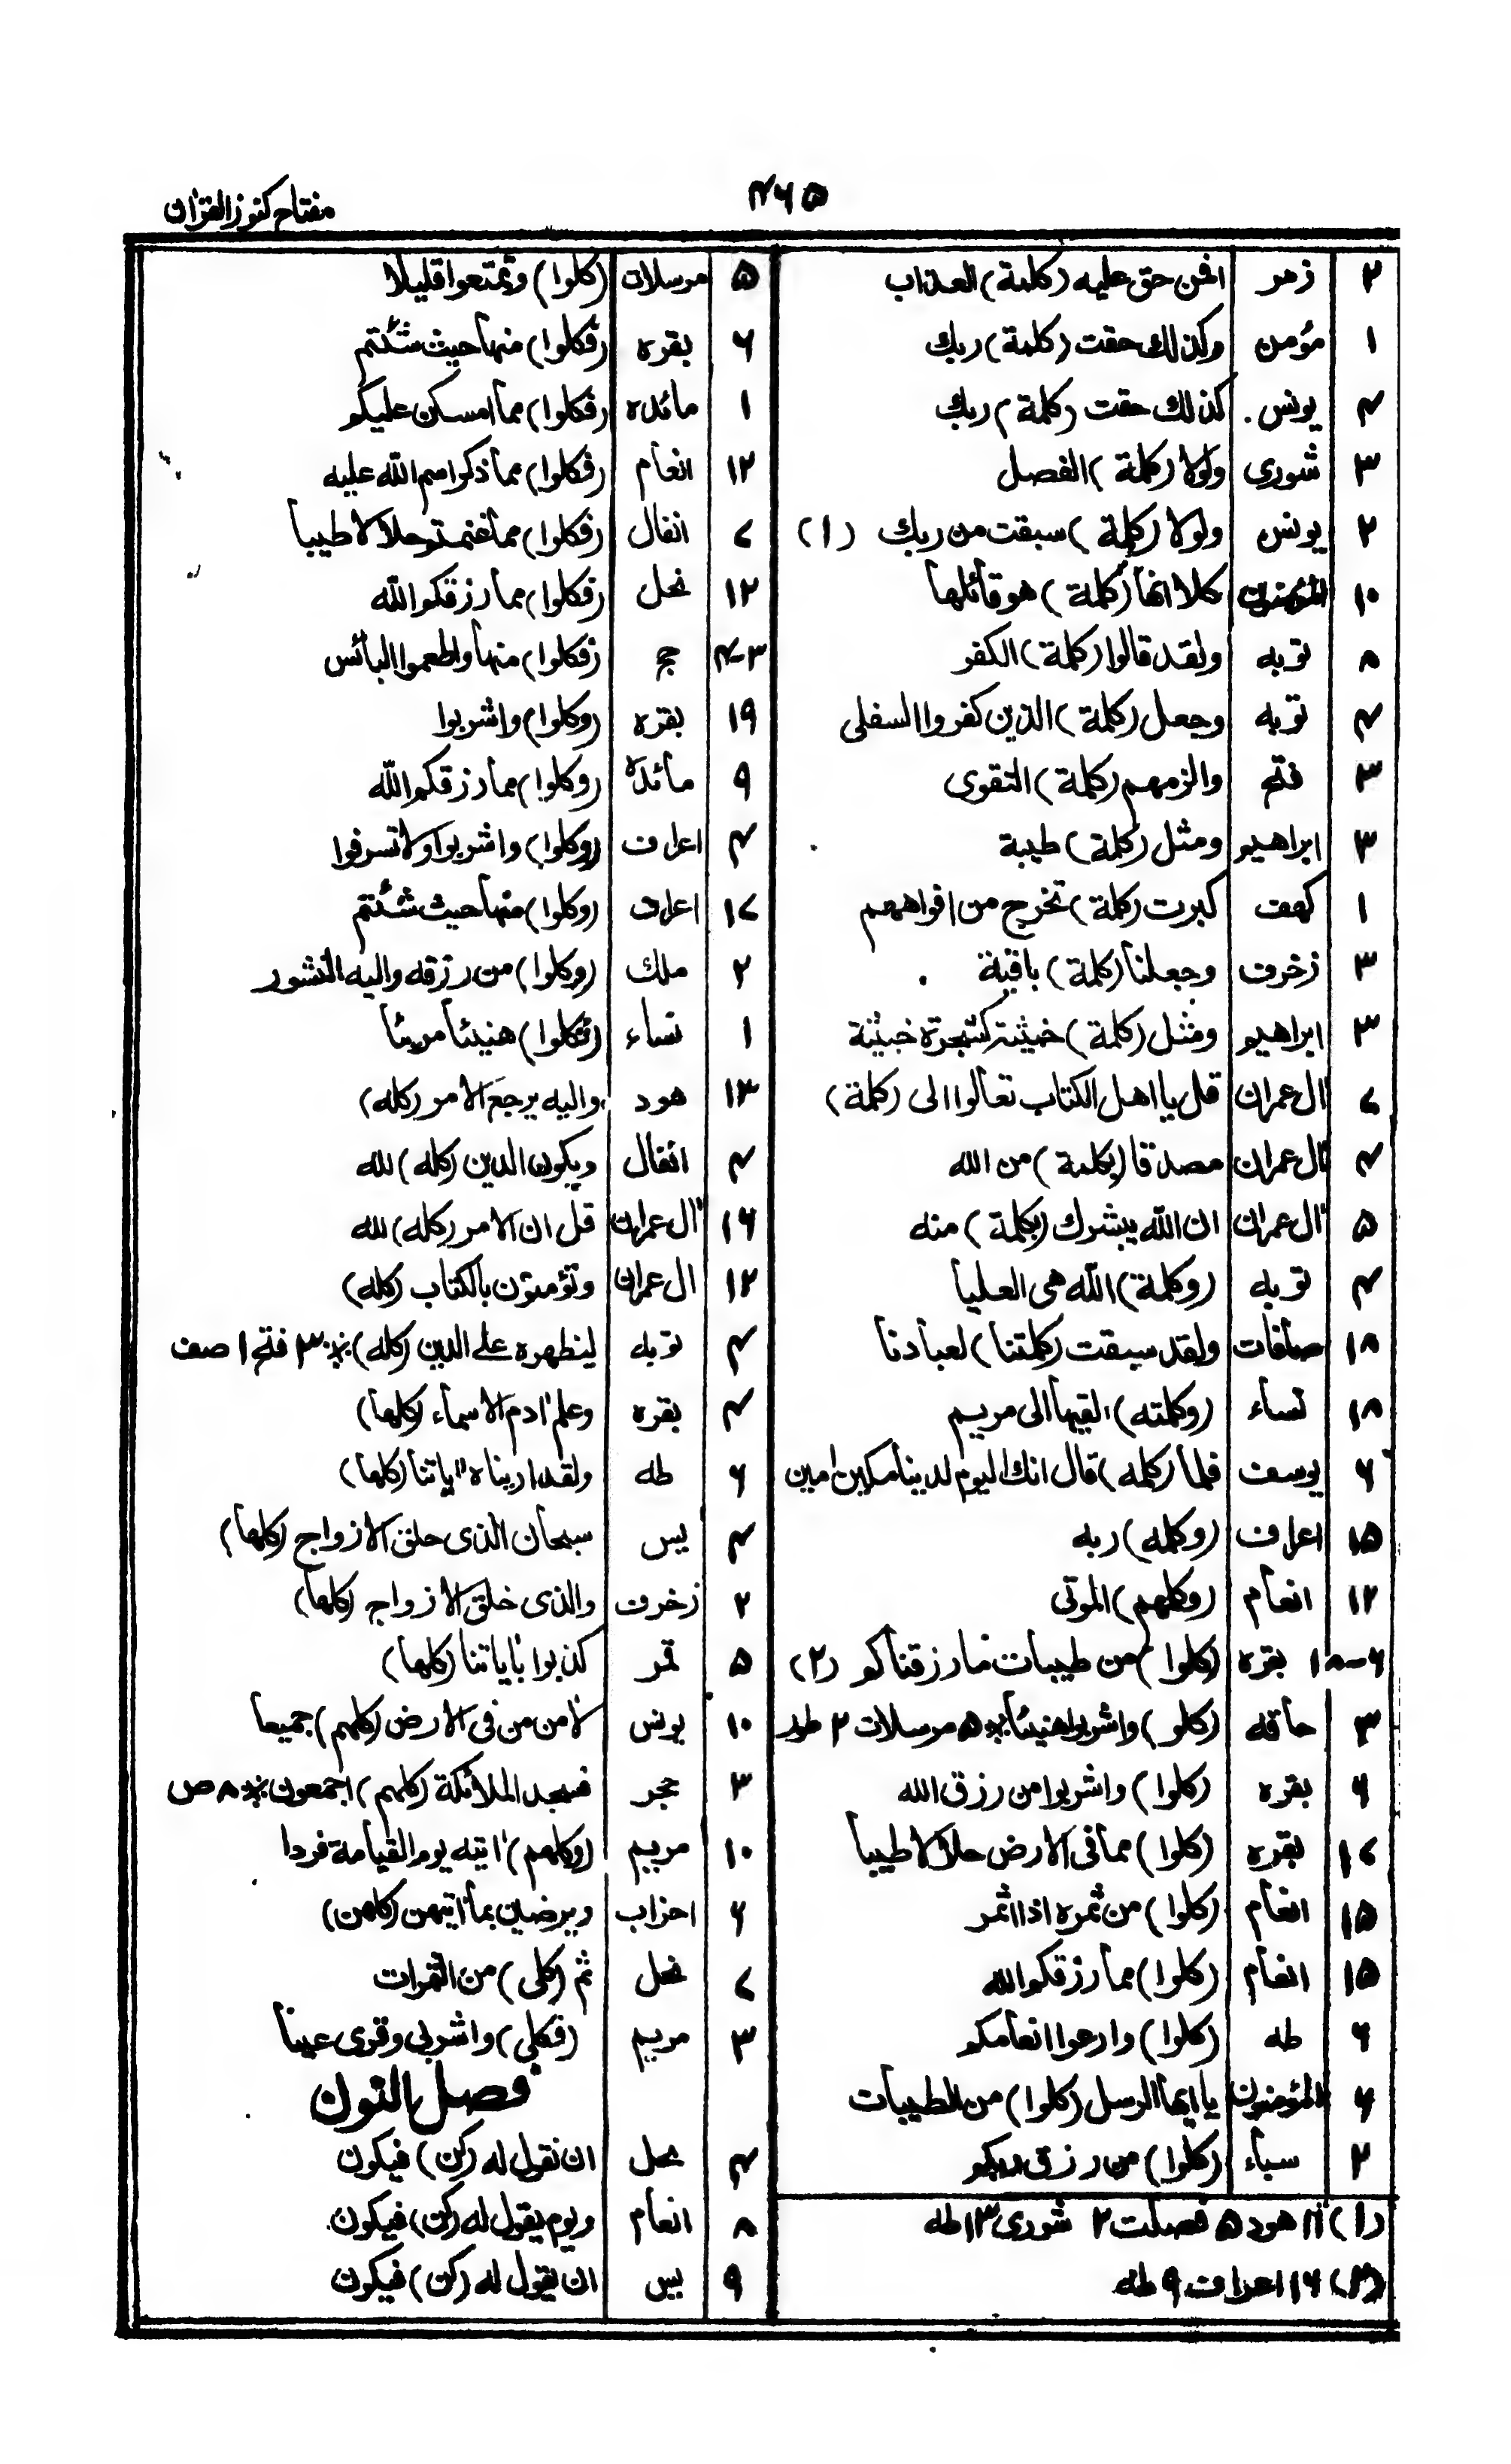 ۴۶۵
مفتاح کنوز القران
۲ زمر افمن حق علیه (کلمة) العذاب
۱ مؤمن وکذلك حقت (کلمة) ربك
۴ یونس کذلك حقت (کلمة) ربك
۳ شوری ولولا (کلمة) الفصل
۲ یونس ولولا (کلمة) سبقت من ربك (۱)
۱۰ المؤمنون کلا انها (کلمة) هو قائلها
۸ توبه ولقد قالوا (کلمة) الکفر
۴ توبه وجعل (کلمة) الذین کفروا السفلی
۳ فتح والزمهم (کلمة) التقوی
۳ ابراهیم ومثل (کلمة) طیبة
۱ کهف کبرت (کلمة) تخرج من افواههم
۳ زخرف وجعلنا (کلمة) باقیة
۳ ابراهیم ومثل (کلمة) خبیثة کشجرة خبیثة
۷ ال عمران قل یا اهل الکتاب تعالوا الی (کلمة)
۴ ال عمران مصدقا (بکلمة) من الله
۵ ال عمران ان الله یبشرك (بکلمة) منه
۴ توبه (وکلمة) الله هی العلیا
۱۸ صافات ولقد سبقت (کلمتنا) لعبادنا
۱۸ نساء (وکلمته) القیها الی مریم
۶ یوسف فلما (کلمه) قال انك الیوم لدینا مکین امین
۱۵ اعراف (وکلمه) ربه
۱۲ انعام (وکلمهم) الموتی
۶-۱۸ بقره (کلوا) من طیبات ما رزقناکم (۲)
۳ حاقه (کلو) واشربوا هنیئا ۵ مرسلات ۲ طور
۶ بقره (کلوا) واشربوا من رزق الله
۱۷ بقره (کلوا) مما فی الارض حلالا طیبا
۱۵ انعام (کلوا) من ثمره اذا اثمر
۱۵ انعام (کلوا) مما رزقکم الله
۶ طه (کلوا) وارعوا انعامکم
۶ المؤمنون یا ایها الرسل (کلوا) من الطیبات
۲ سباء (کلوا) من رزق ربکم
(۱) ۱۱ هود ۵ فصلت ۲ شوری ۱۳ طه
(۲) ۱۶ اعراف ۹ طه
۵ مرسلات (کلوا) وتمتعوا قلیلا
۶ بقره (فکلوا) منها حیث شئتم
۱ مائده (فکلوا) مما امسکن علیکم
۱۲ انعام (فکلوا) مما ذکر اسم الله علیه
۷ انفال (فکلوا) مما غنمتم حلالا طیبا
۱۲ نحل (فکلوا) مما رزقکم الله
۳-۴ حج (فکلوا) منها واطعموا البائس
۱۹ بقره (وکلوا) واشربوا
۹ مائدة (وکلوا) مما رزقکم الله
۴ اعراف (وکلوا) واشربوا ولا تسرفوا
۱۷ اعراف (وکلوا) منها حیث شئتم
۲ ملك (وکلوا) من رزقه والیه النشور
۱ نساء (فکلوا) هنیئا مریئا
۱۳ هود والیه یرجع الامر (کله)
۴ انفال ویکون الدین (کله) لله
۱۶ ال عمران قل ان الامر (کله) لله
۱۲ ال عمران وتؤمنون بالکتاب (کله)
۴ توبه لیظهره علی الدین (کله) ۳ فتح ۱ صف
۴ بقره وعلم ادم الاسماء (کلها)
۶ طه ولقد اریناه ایاتنا (کلها)
۴ یس سبحان الذی خلق الازواج (کلها)
۲ زخرف والذی خلق الازواج (کلها)
۵ قمر کذبوا بایاتنا (کلها)
۱۰ یونس لامن من فی الارض (کلهم) جمیعا
۳ حجر فسجد الملائکة (کلهم) اجمعون ۸ ص
۱۰ مریم (وکلهم) اتیه یوم القیامة فردا
۶ احزاب ویرضین بما اتیتهن (کلهن)
۷ نحل ثم (کلی) من الثمرات
۳ مریم (فکلی) واشربی وقری عینا
فصل النون
۴ نحل ان نقول له (کن) فیکون
۸ انعام ویوم یقول له (کن) فیکون
۹ یس ان یقول له (کن) فیکون